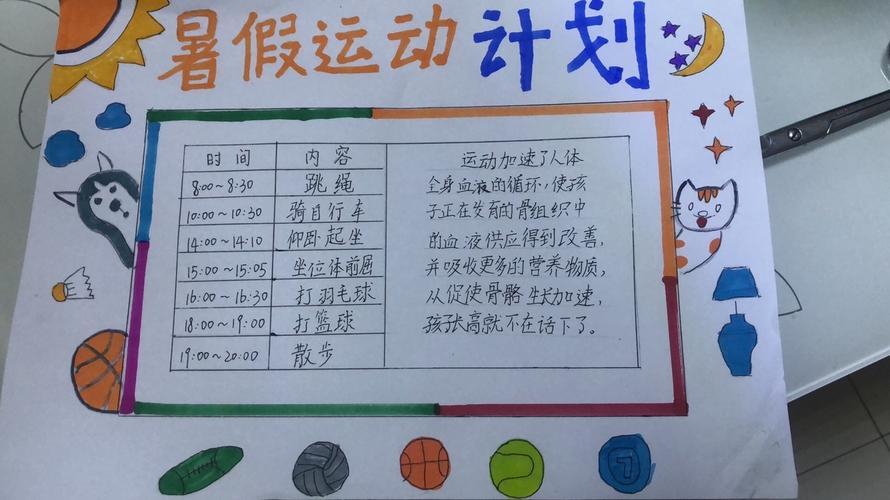 暑假运动计划
时间 内容
8:00~8:30 跳绳
10:00~10:30 骑自行车
14:00~14:10 仰卧起坐
15:00~15:05 坐位体前屈
16:00~16:30 打羽毛球
18:00~19:00 打篮球
19:00~20:00 散步
运动加速了人体
全身血液的循环,使孩
子正在发育的骨组织中
的血液供应得到改善,
并吸收更多的营养物质,
从促使骨骼生长加速,
孩子长高就不在话下了。
7